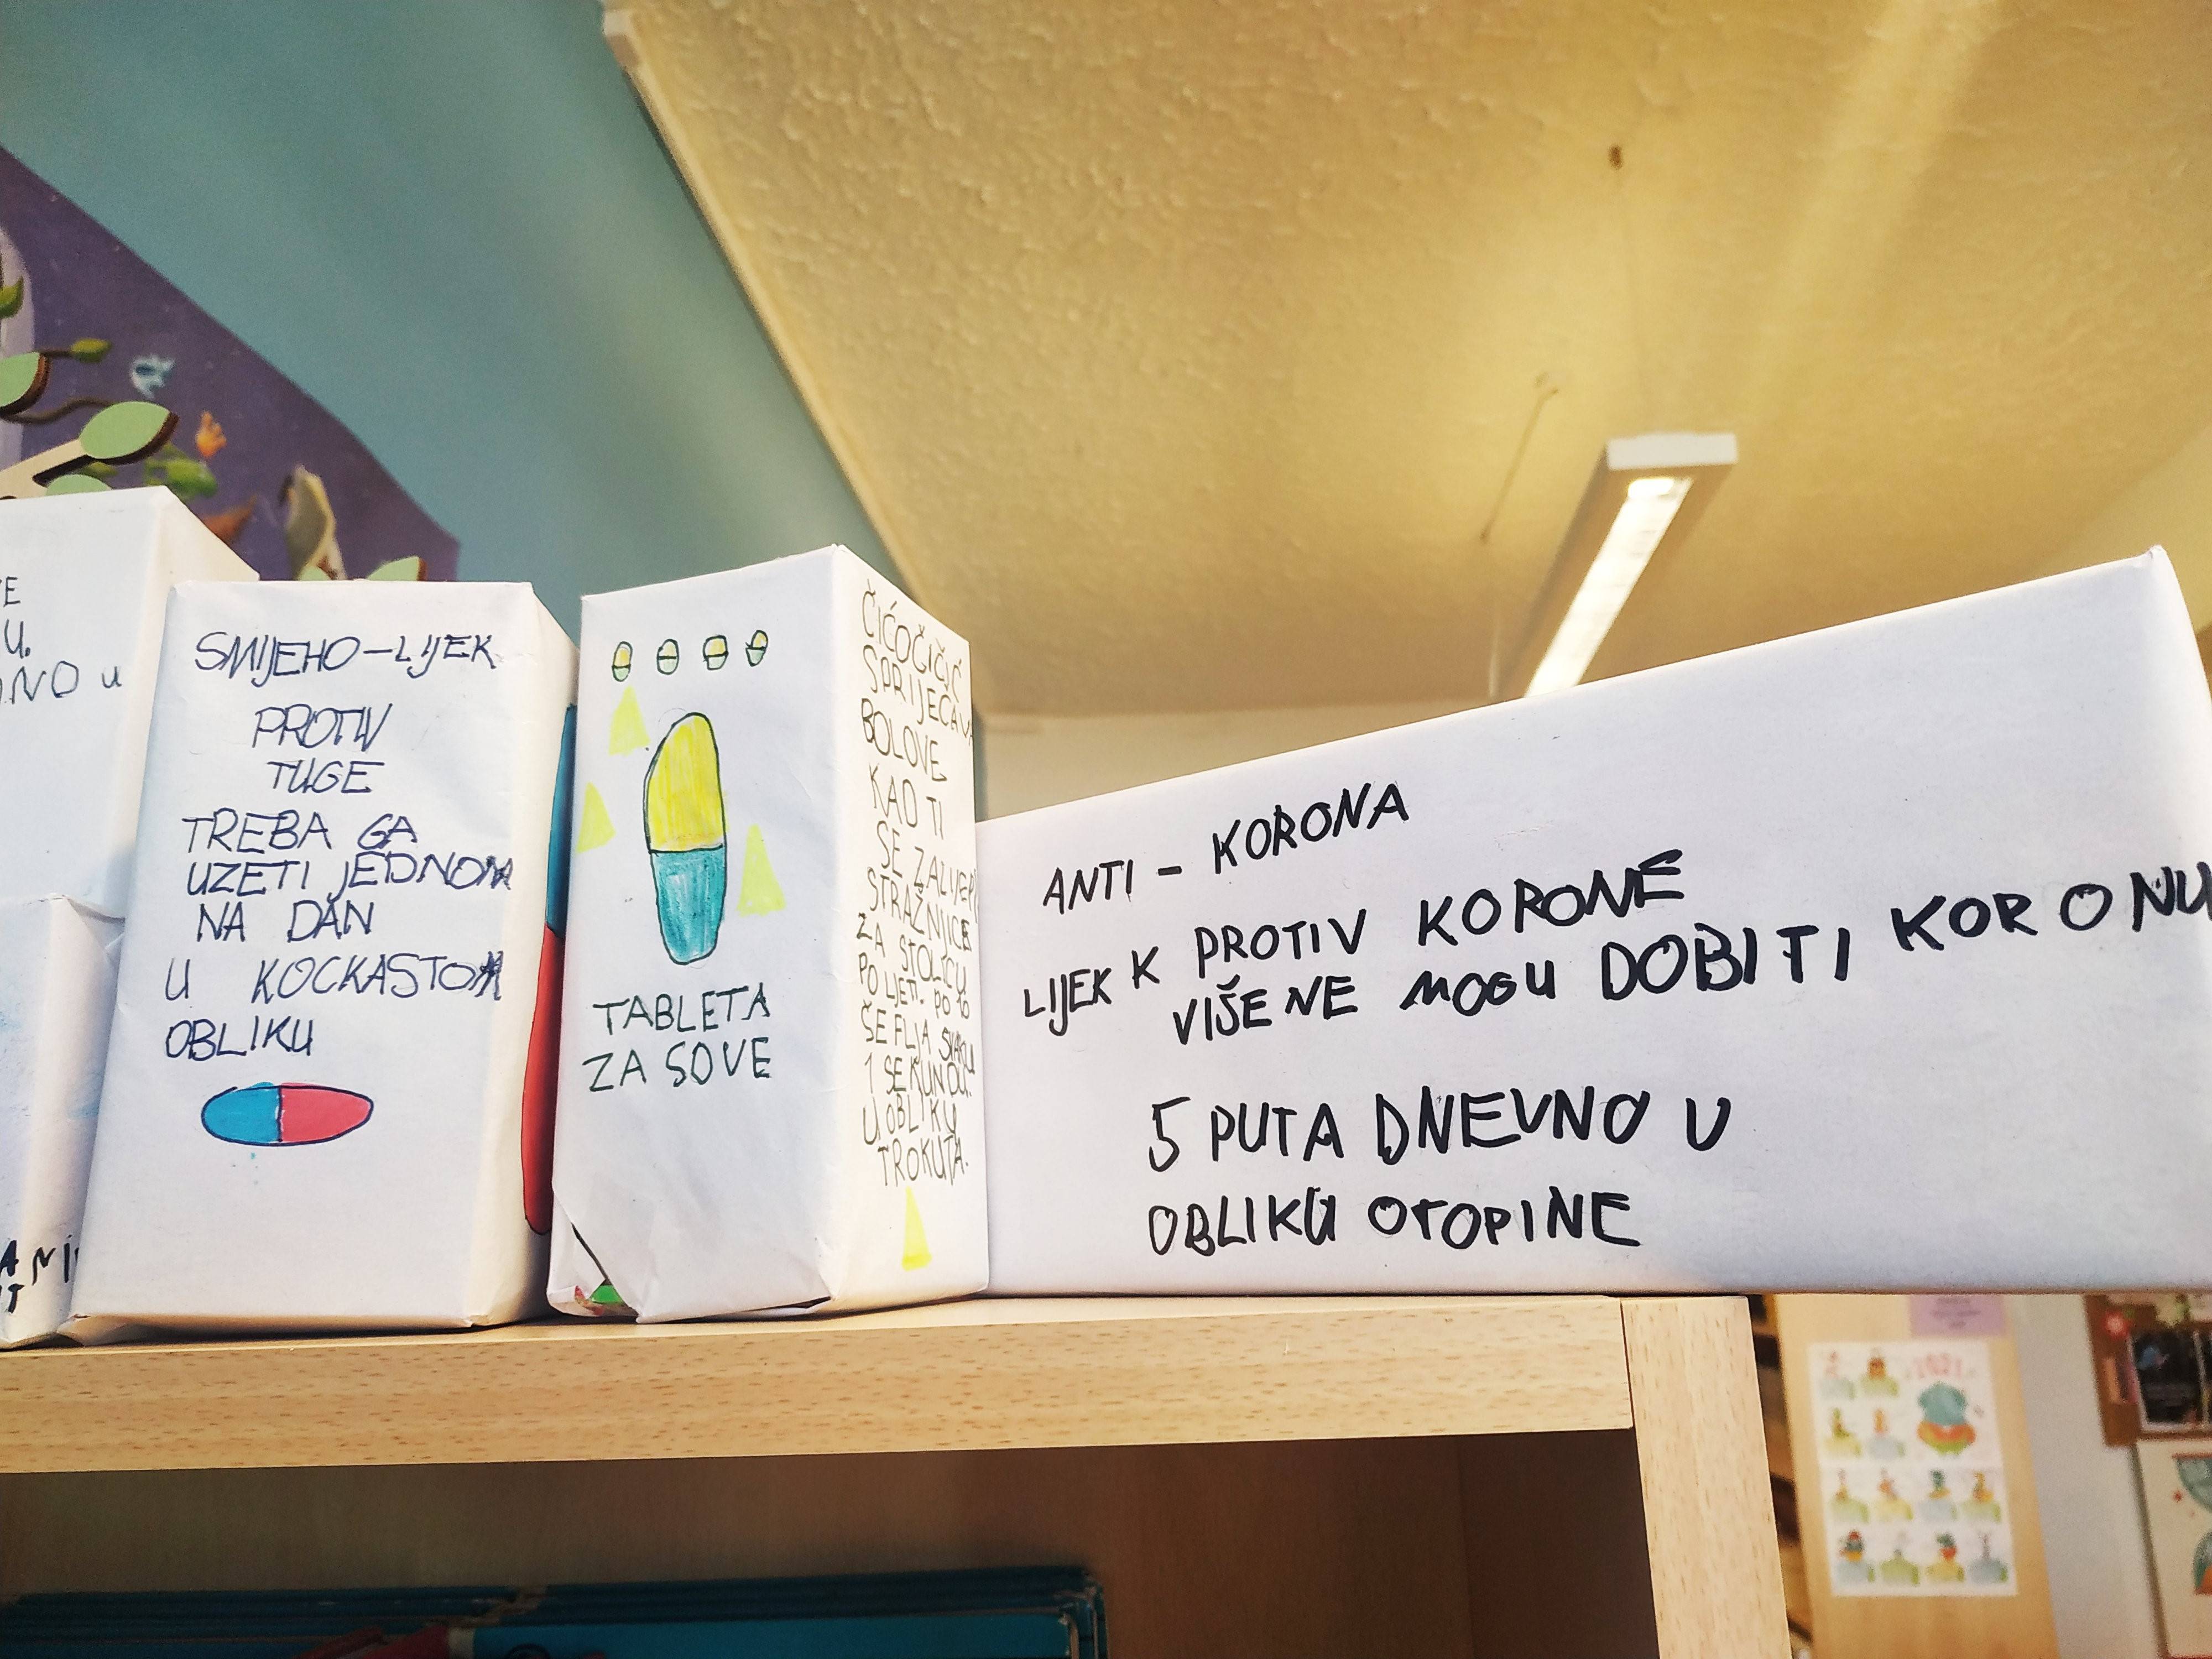 E
U.
NO u
SMIJEHO-LIJEK
PROTIV
TUGE
TREBA GA
UZETI JEDNOM
NA DAN
U KOCKASTOM
OBLIKU
TABLETA
ZA SOVE
ČIĆOČIČIĆ
SPRIJEČAVA
BOLOVE
KAO TI
SE ZALIJEPI
STRAŽNJICE
ZA STOLICU
PO LJETI. PO 10
ŠEFLJA SVAKU
1 SEKUNDU.
U OBLIKU
TROKUTA.
ANTI - KORONA
LIJEK K PROTIV KORONE
VIŠE NE MOGU DOBITI KORONU
5 PUTA DNEVNO U
OBLIKU OTOPINE
2021